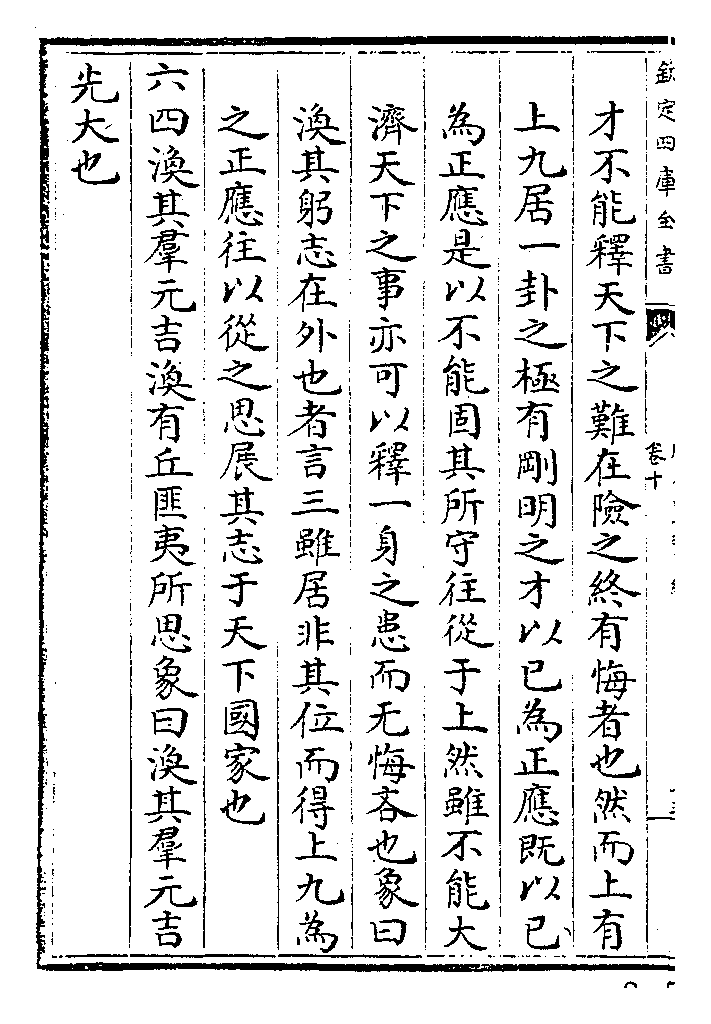 欽定四庫全書
卷十
才不能釋天下之難在險之終有悔者也然而上有
上九居一卦之極有剛明之才以已為正應既以已
為正應是以不能固其所守往從于上然雖不能大
濟天下之事亦可以釋一身之患而无悔吝也象曰
渙其躬志在外也者言三雖居非其位而得上九為
之正應往以從之思展其志于天下國家也
六四渙其羣元吉渙有丘匪夷所思象曰渙其羣元吉
光大也